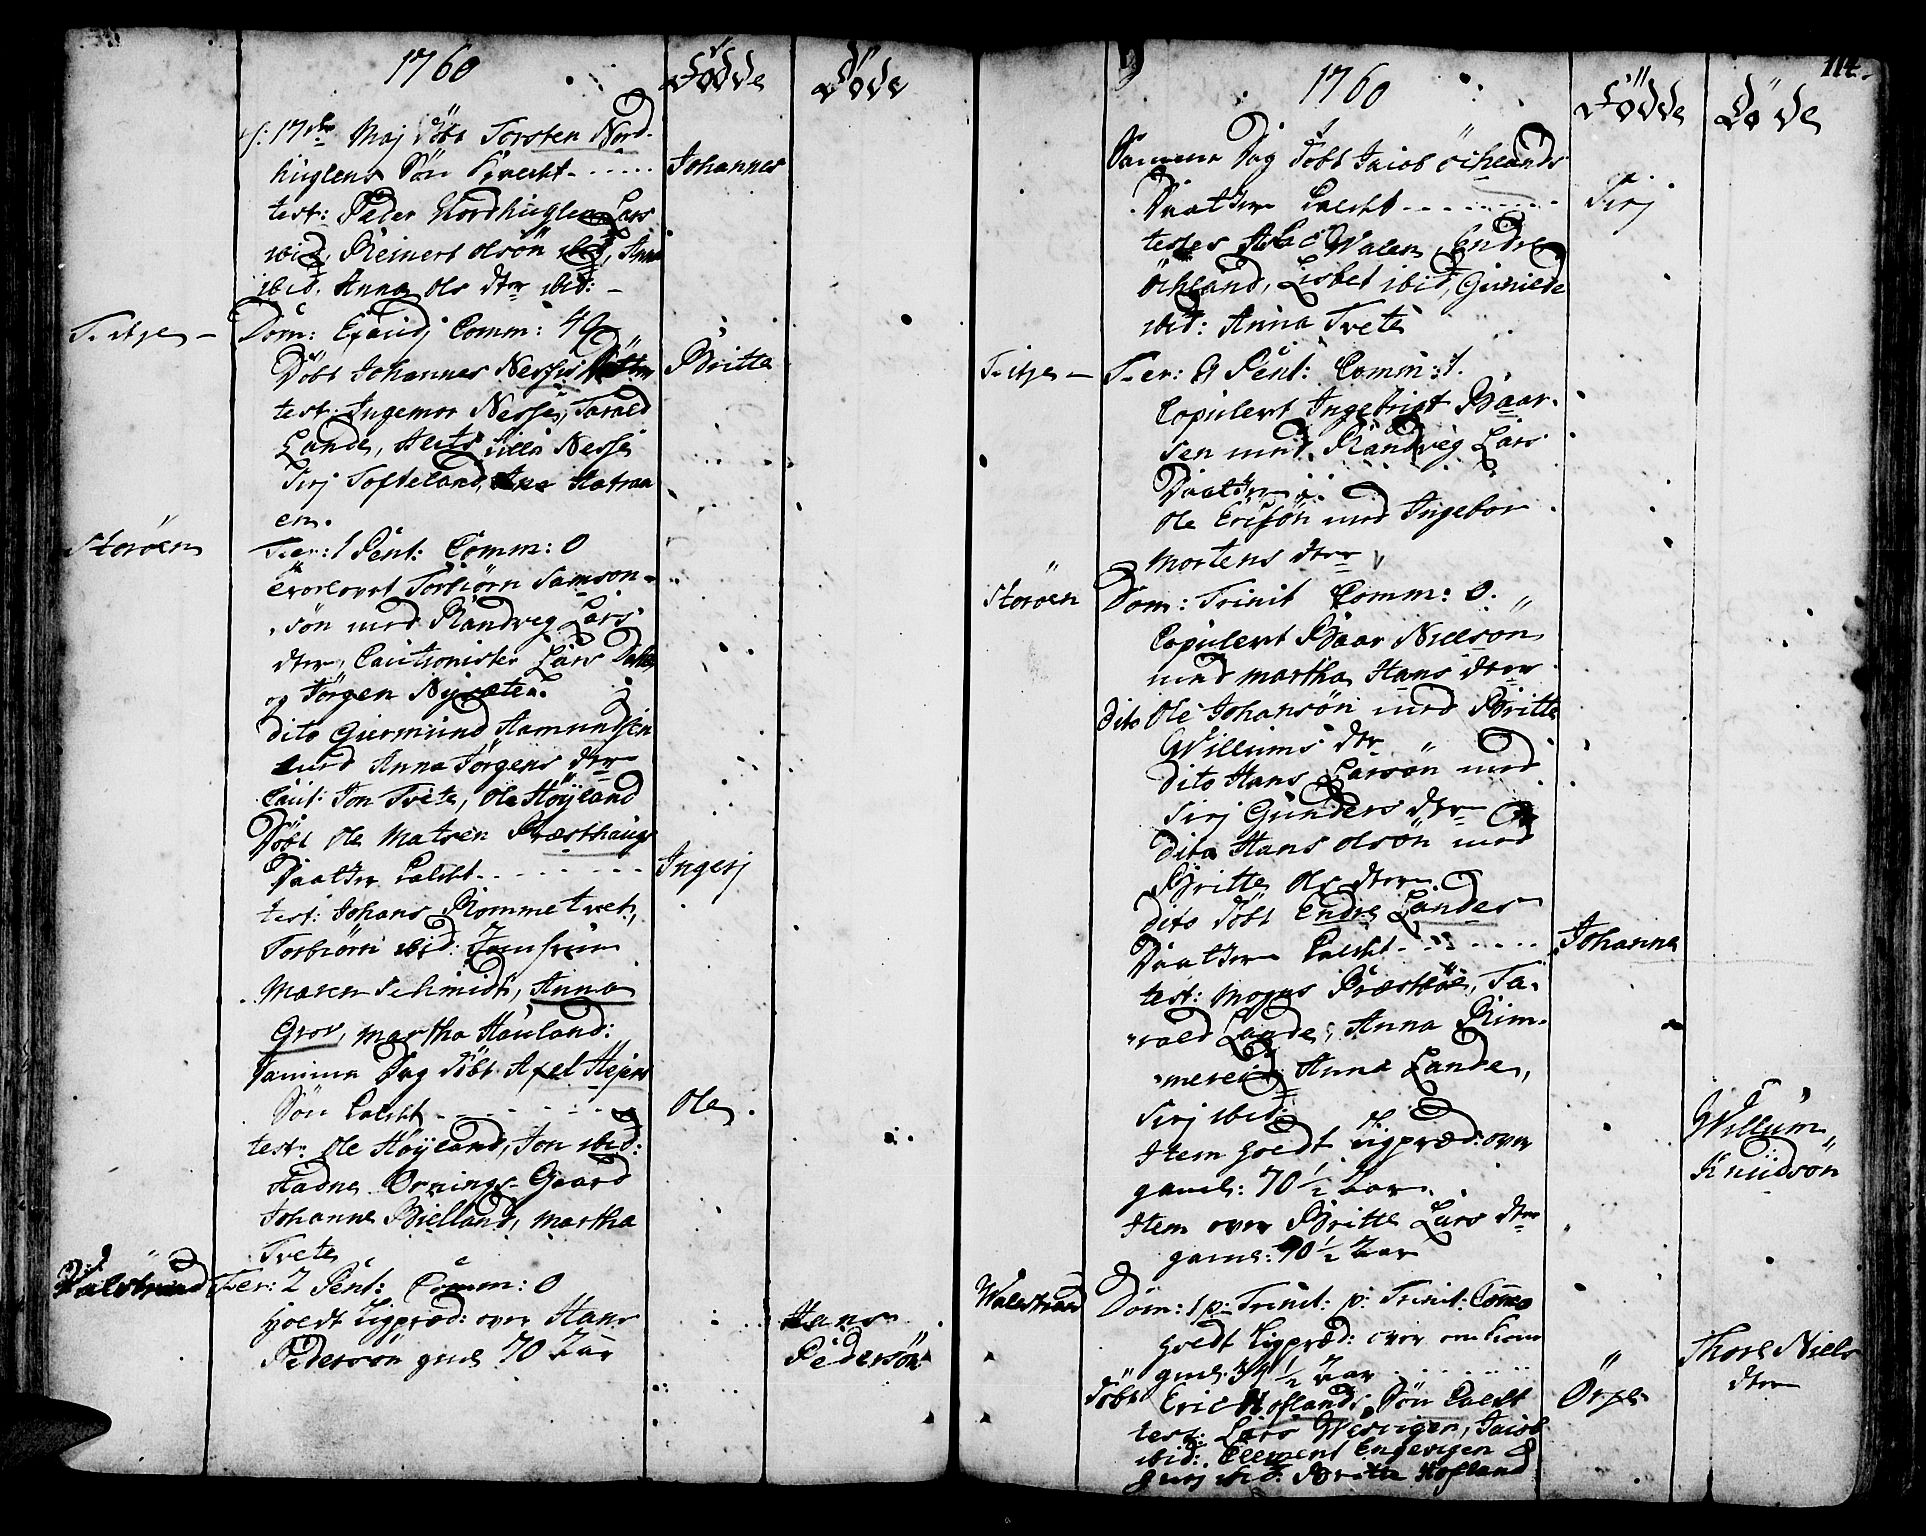 1760
Födde
Döde
d: 17de Maj Döbt Torsten Nord-
huglens Sön kaldt - - - - - Johannes
test: Peder Nordhuglen, Lars
ibid, Reinert Olsön ibid, Anna
ibid. Anna Ols dtr ibid: -
Fitje - Dom: Exaudj Comm: 40
Döbt Johannes Nesses Datter Britte
test: Ingemor Nesse, Tarald
Lande, Silla Nesse
Sirj Tofteland, Hatraa
en.
Storöen Fer: 1 Pent: Comm: 0
Trolovet Torbiörn Samson-
sön med Randveg Lars
dtr, Cautionister Lars
og Jörgen Nysæter.
dito Giermund Aamundsen
med Anna Jörgens dtr
Caut: Jon Tvete, Ole Höyland
Döbt Ole Matsen Præsthaugs
Daatter kaldt - - - - - - - Ingerj
test: Johans Rommetvet,
Torbiörn ibid: Jomfrue
Maren Schmidt, Anna
Grov, Martha Hauland:
Samme Dag Döbt Axel
Sön kaldt - - - - - - - Ole
test: Ole Höyland, Jon ibid:
Ornings-Gaard
Johanne Bielland, Martha
Tvete
Walestrand Fer: 2 Pent: Comm: 0
holdt Ligpræd: over Hans Hans
Pedersön gml 70 Aar Pedersön
114.
1760
Födde
Döde
Samme Dag Döbt Jacob Öchlands
Daatter kaldt - - - - - - - Sirj
testes Walen, Endre
Öchland, Lisbet ibid, Gunilde
ibid: Anna Tvete
Fitje - Fer: 3 Pent: Comm:
Copulert Ingebrigt Baar-
sen med Randveg Lars
Daatter
Ole Ericsön med Ingebor
Mortens dtr
Storöen Dom: Trinit Comm: 0.
Copulert Baar Nielsön
med Martha Hans dtr
dito Ole Johansön med Britte
Willums dtr
dito Hans Larsön med
Sirj Gunders dtr
dito Hans Olsön med
Britte Ols dtr
dito Döbt Endre Landes
Daatter kaldt - - - - - Johanna
test: Mogns Præsthöe, Ta-
rald Lande, Anna Rim-
mereid, Anna Lande,
Sirj ibid:
Item holdt Ligpræd: over Willum
gaml: 70 1/2 Aar. Knudsön
Item over Britte Lars dtr
gaml: 70 1/2 Aar
Walestrand Dom: 1 p: Trinit: p: Trinit: Com: 0
holdt Ligpræd: over Thore Niels
gml. 34 1/2 Aar dtr
Döbt Eric Hoflands Sön kaldt
test: Lars Wesvigen, Jacob
ibid: Clement Engevigen
ibid: Britte Hofland